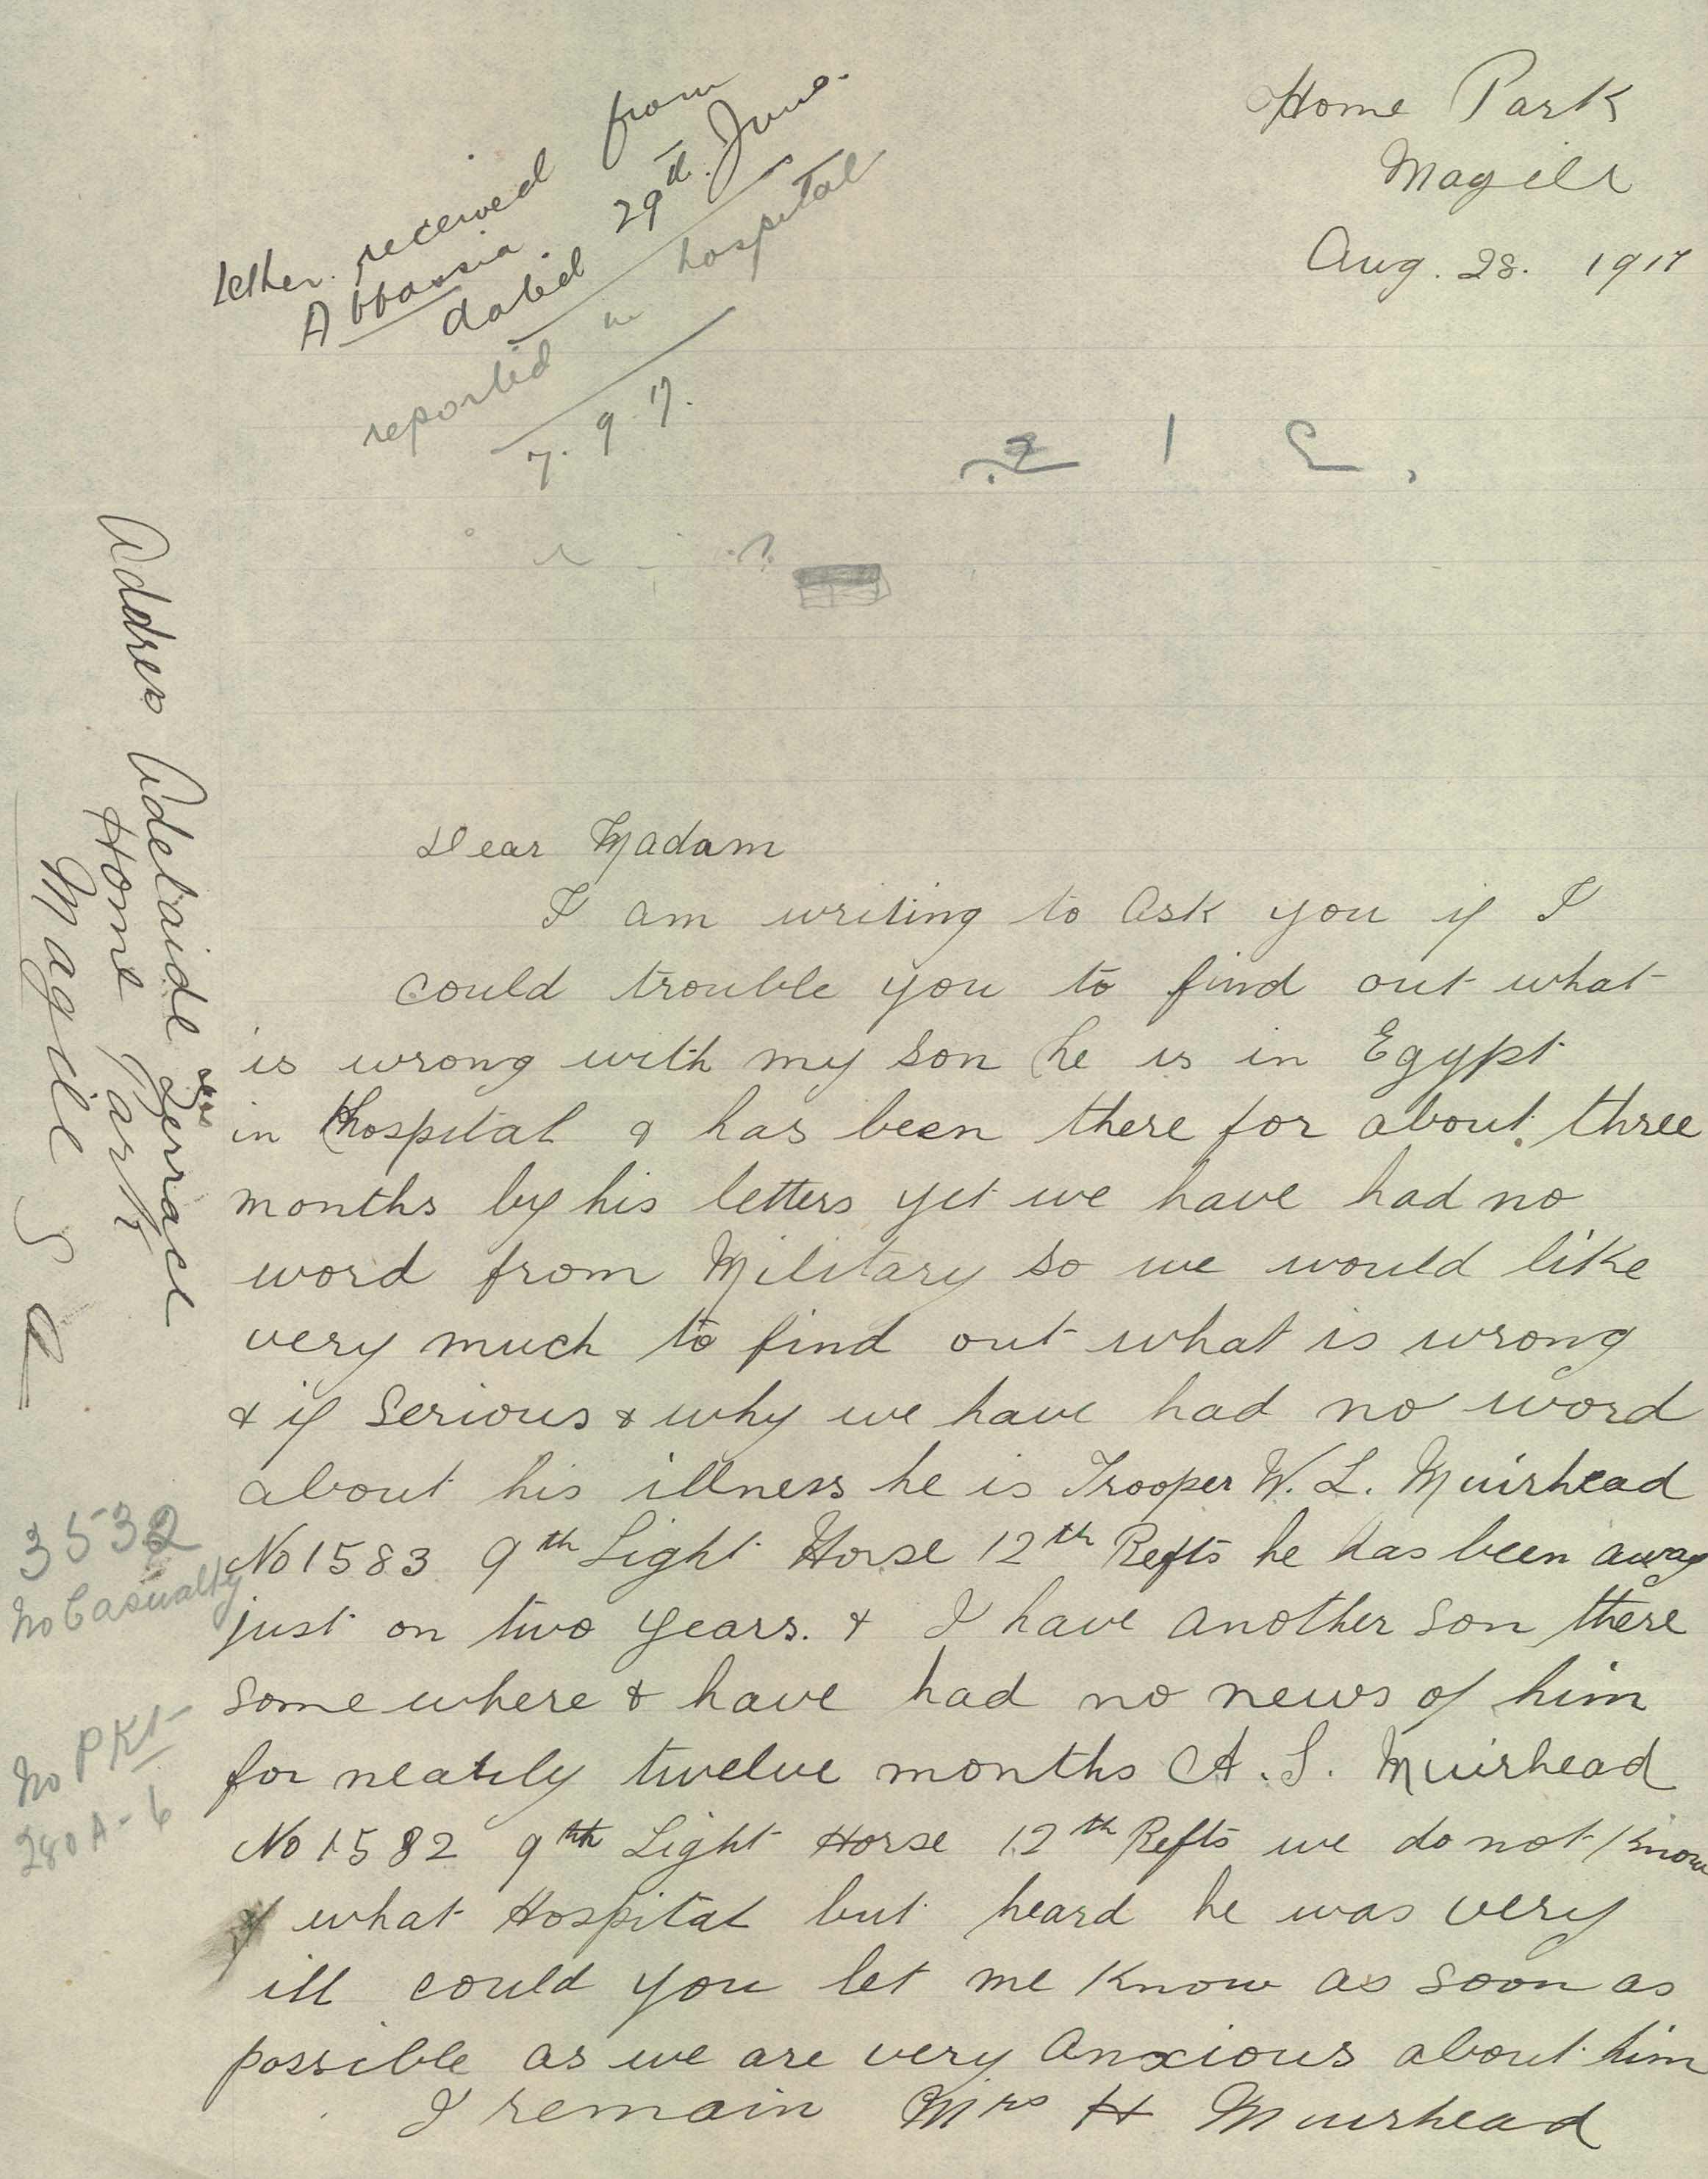 Home Park
Magill
Aug. 28. 1917
letter received from
Abbassia
dated 29th June.
reported in hospital
7. 9. 17.
Address Adelaide Terrace
Home Park
Magill S A
Dear Madam
I am writing to ask you if I
could trouble you to find out what
is wrong with my son he is in Egypt
in hospital & has been there for about three
months by his letters yet we have had no
word from Military so we would like
very much to find out what is wrong
& if serious & why we have had no word
about his illness he is Trooper W. L. Muirhead
No 1583 9th Light Horse 12th Refts he has been away
just on two years. & I have another son there
some where & have had no news of him
for nearly twelve months A. S. Muirhead
No 1582 9th Light Horse 12th Refts we do not know
what Hospital but heard he was very
ill could you let me know as soon as
possible as we are very anxious about him
I remain Mrs H Muirhead
3532
No Casualty
No PKt
280A-6